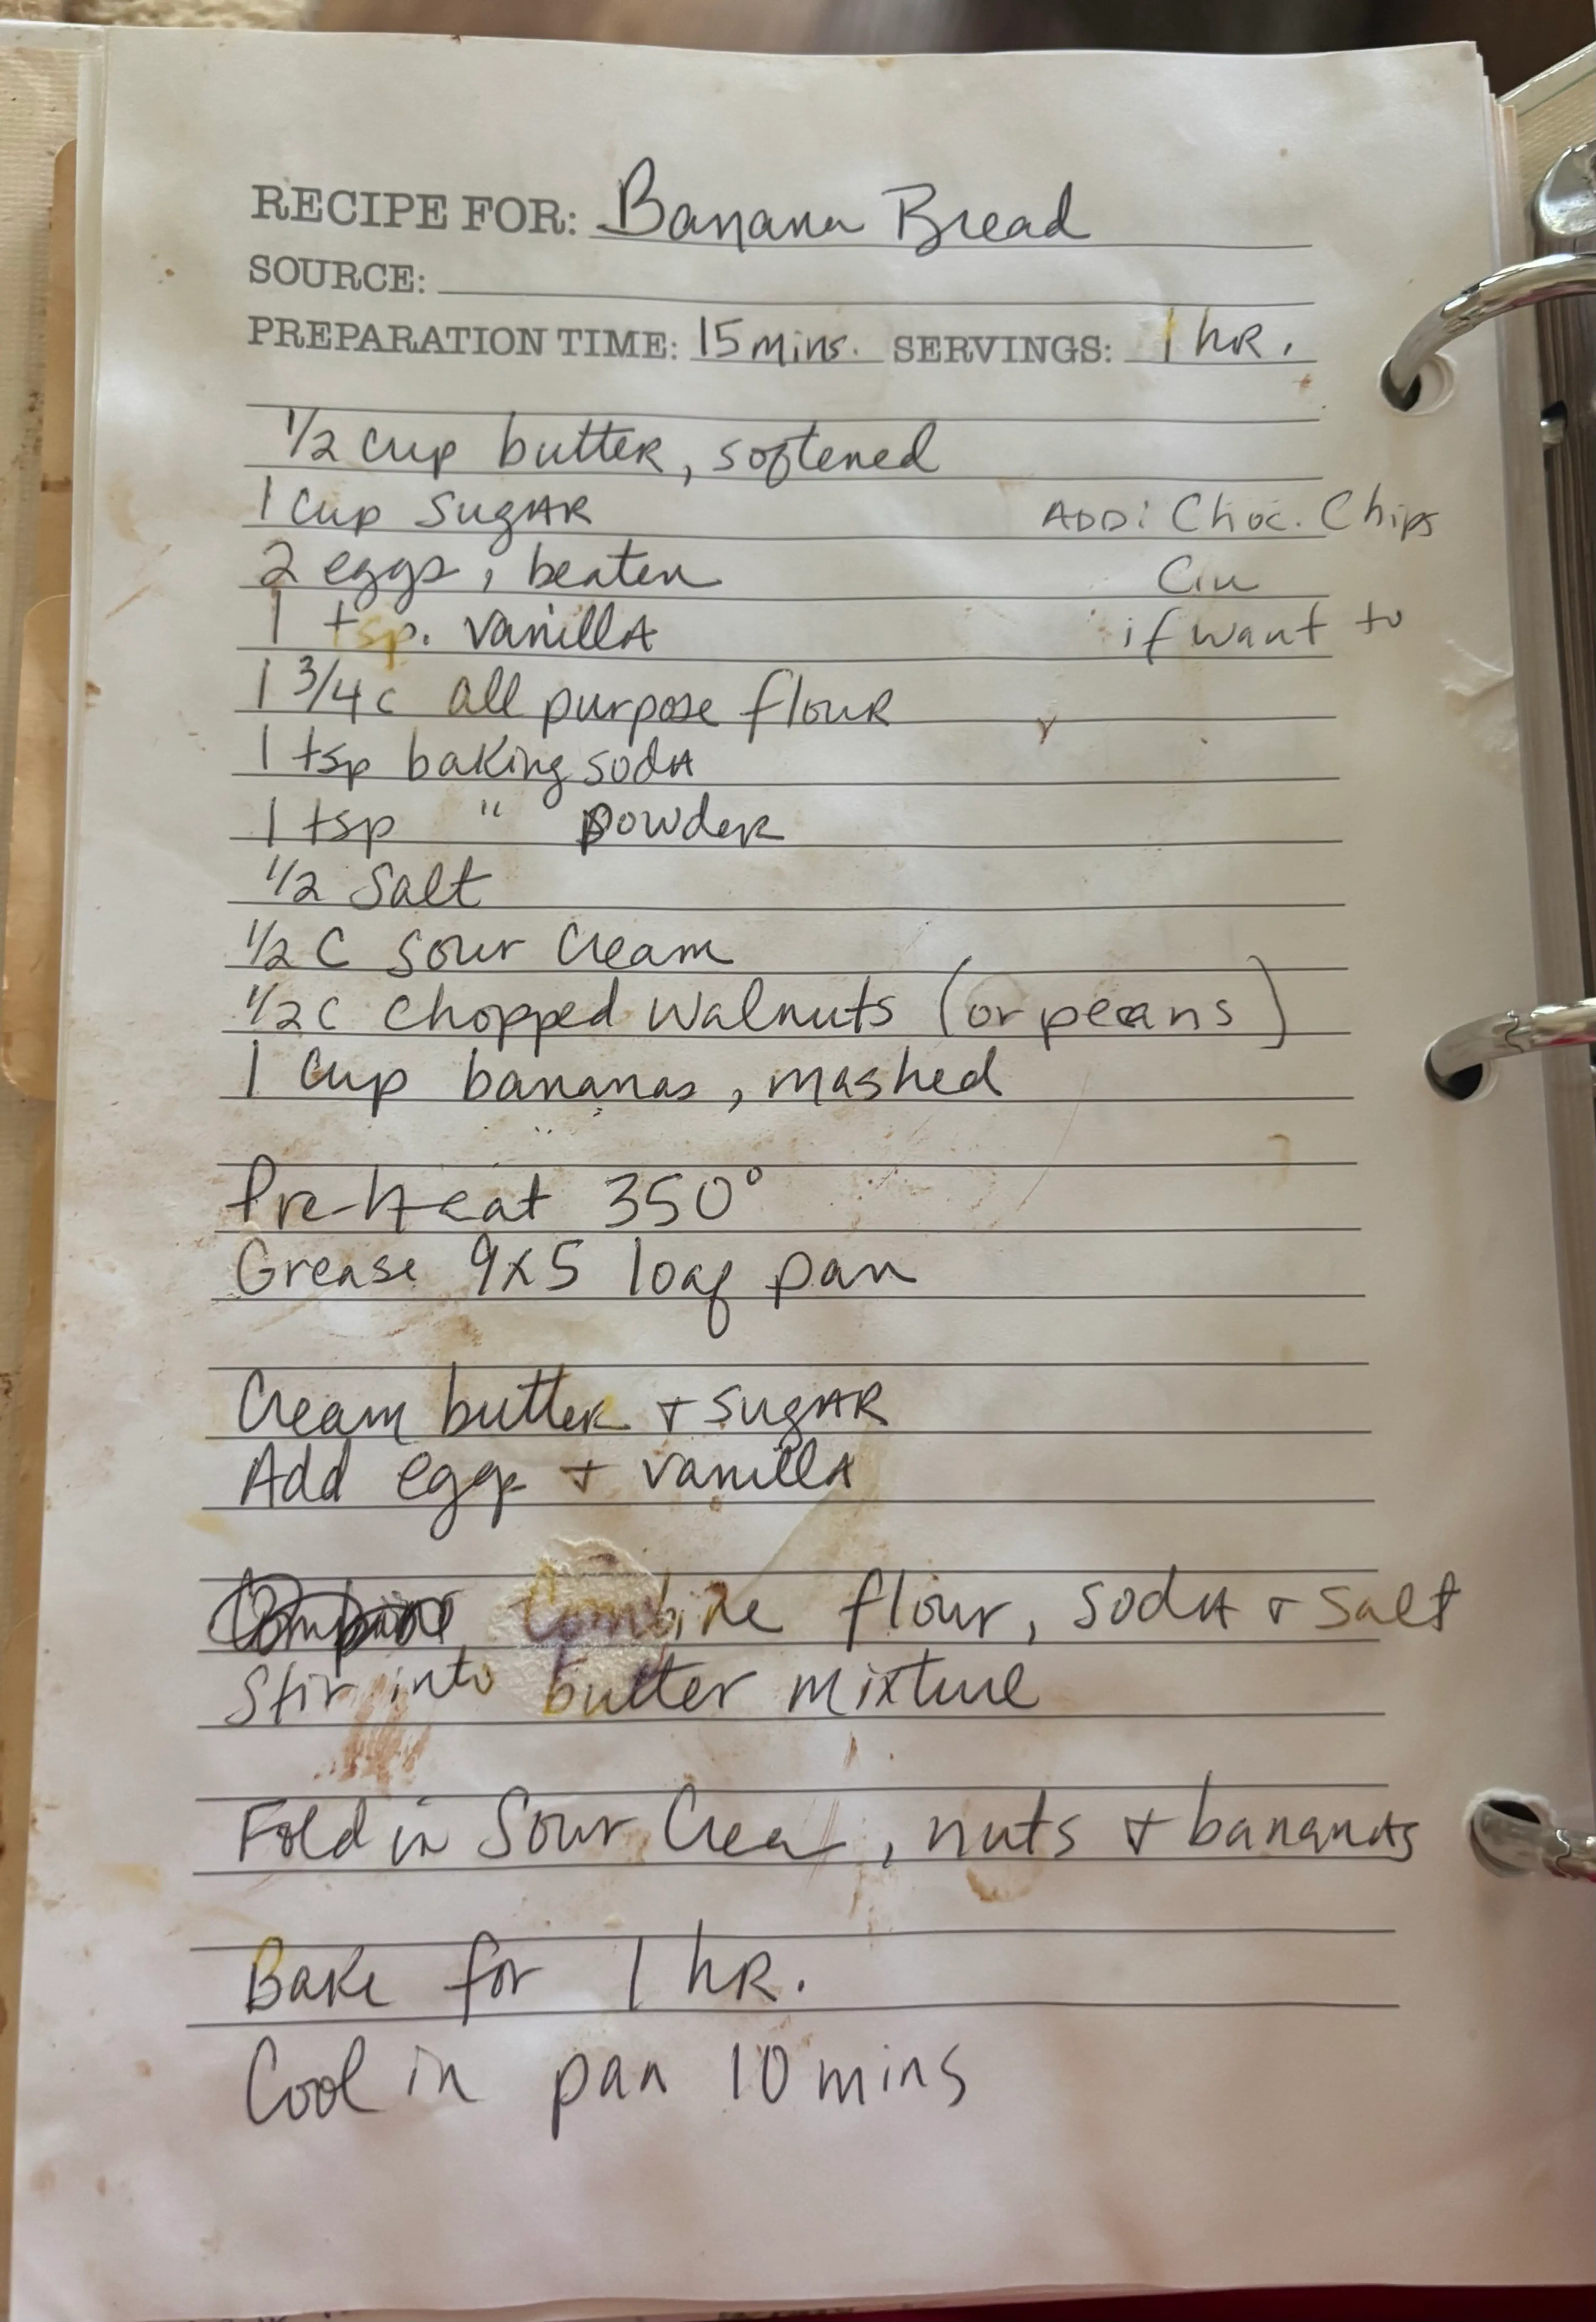 RECIPE FOR: Banana Bread
SOURCE:
PREPARATION TIME: 15 mins. SERVINGS: 1 hR.
1/2 cup butteR, softened
1 Cup SugAR
ADD: Choc. Chips
2 eggs, beaten
Cin
1 tsp. vanillA
if want to
1 3/4 c all purpose flouR
1 tsp baking sodA
1 tsp " powdeR
1/2 Salt
1/2 C Sour Cream
1/2 c chopped walnuts (or pecans)
1 Cup bananas, mashed
Pre-Heat 350°
Grease 9x5 loaf pan
Cream butteR + sugAR
Add eggs + vanillA
Combine flour, sodA + salt
Stir into butter mixture
Fold in Sour Cream, nuts + bananas
Bake for 1 hR.
Cool in pan 10 mins